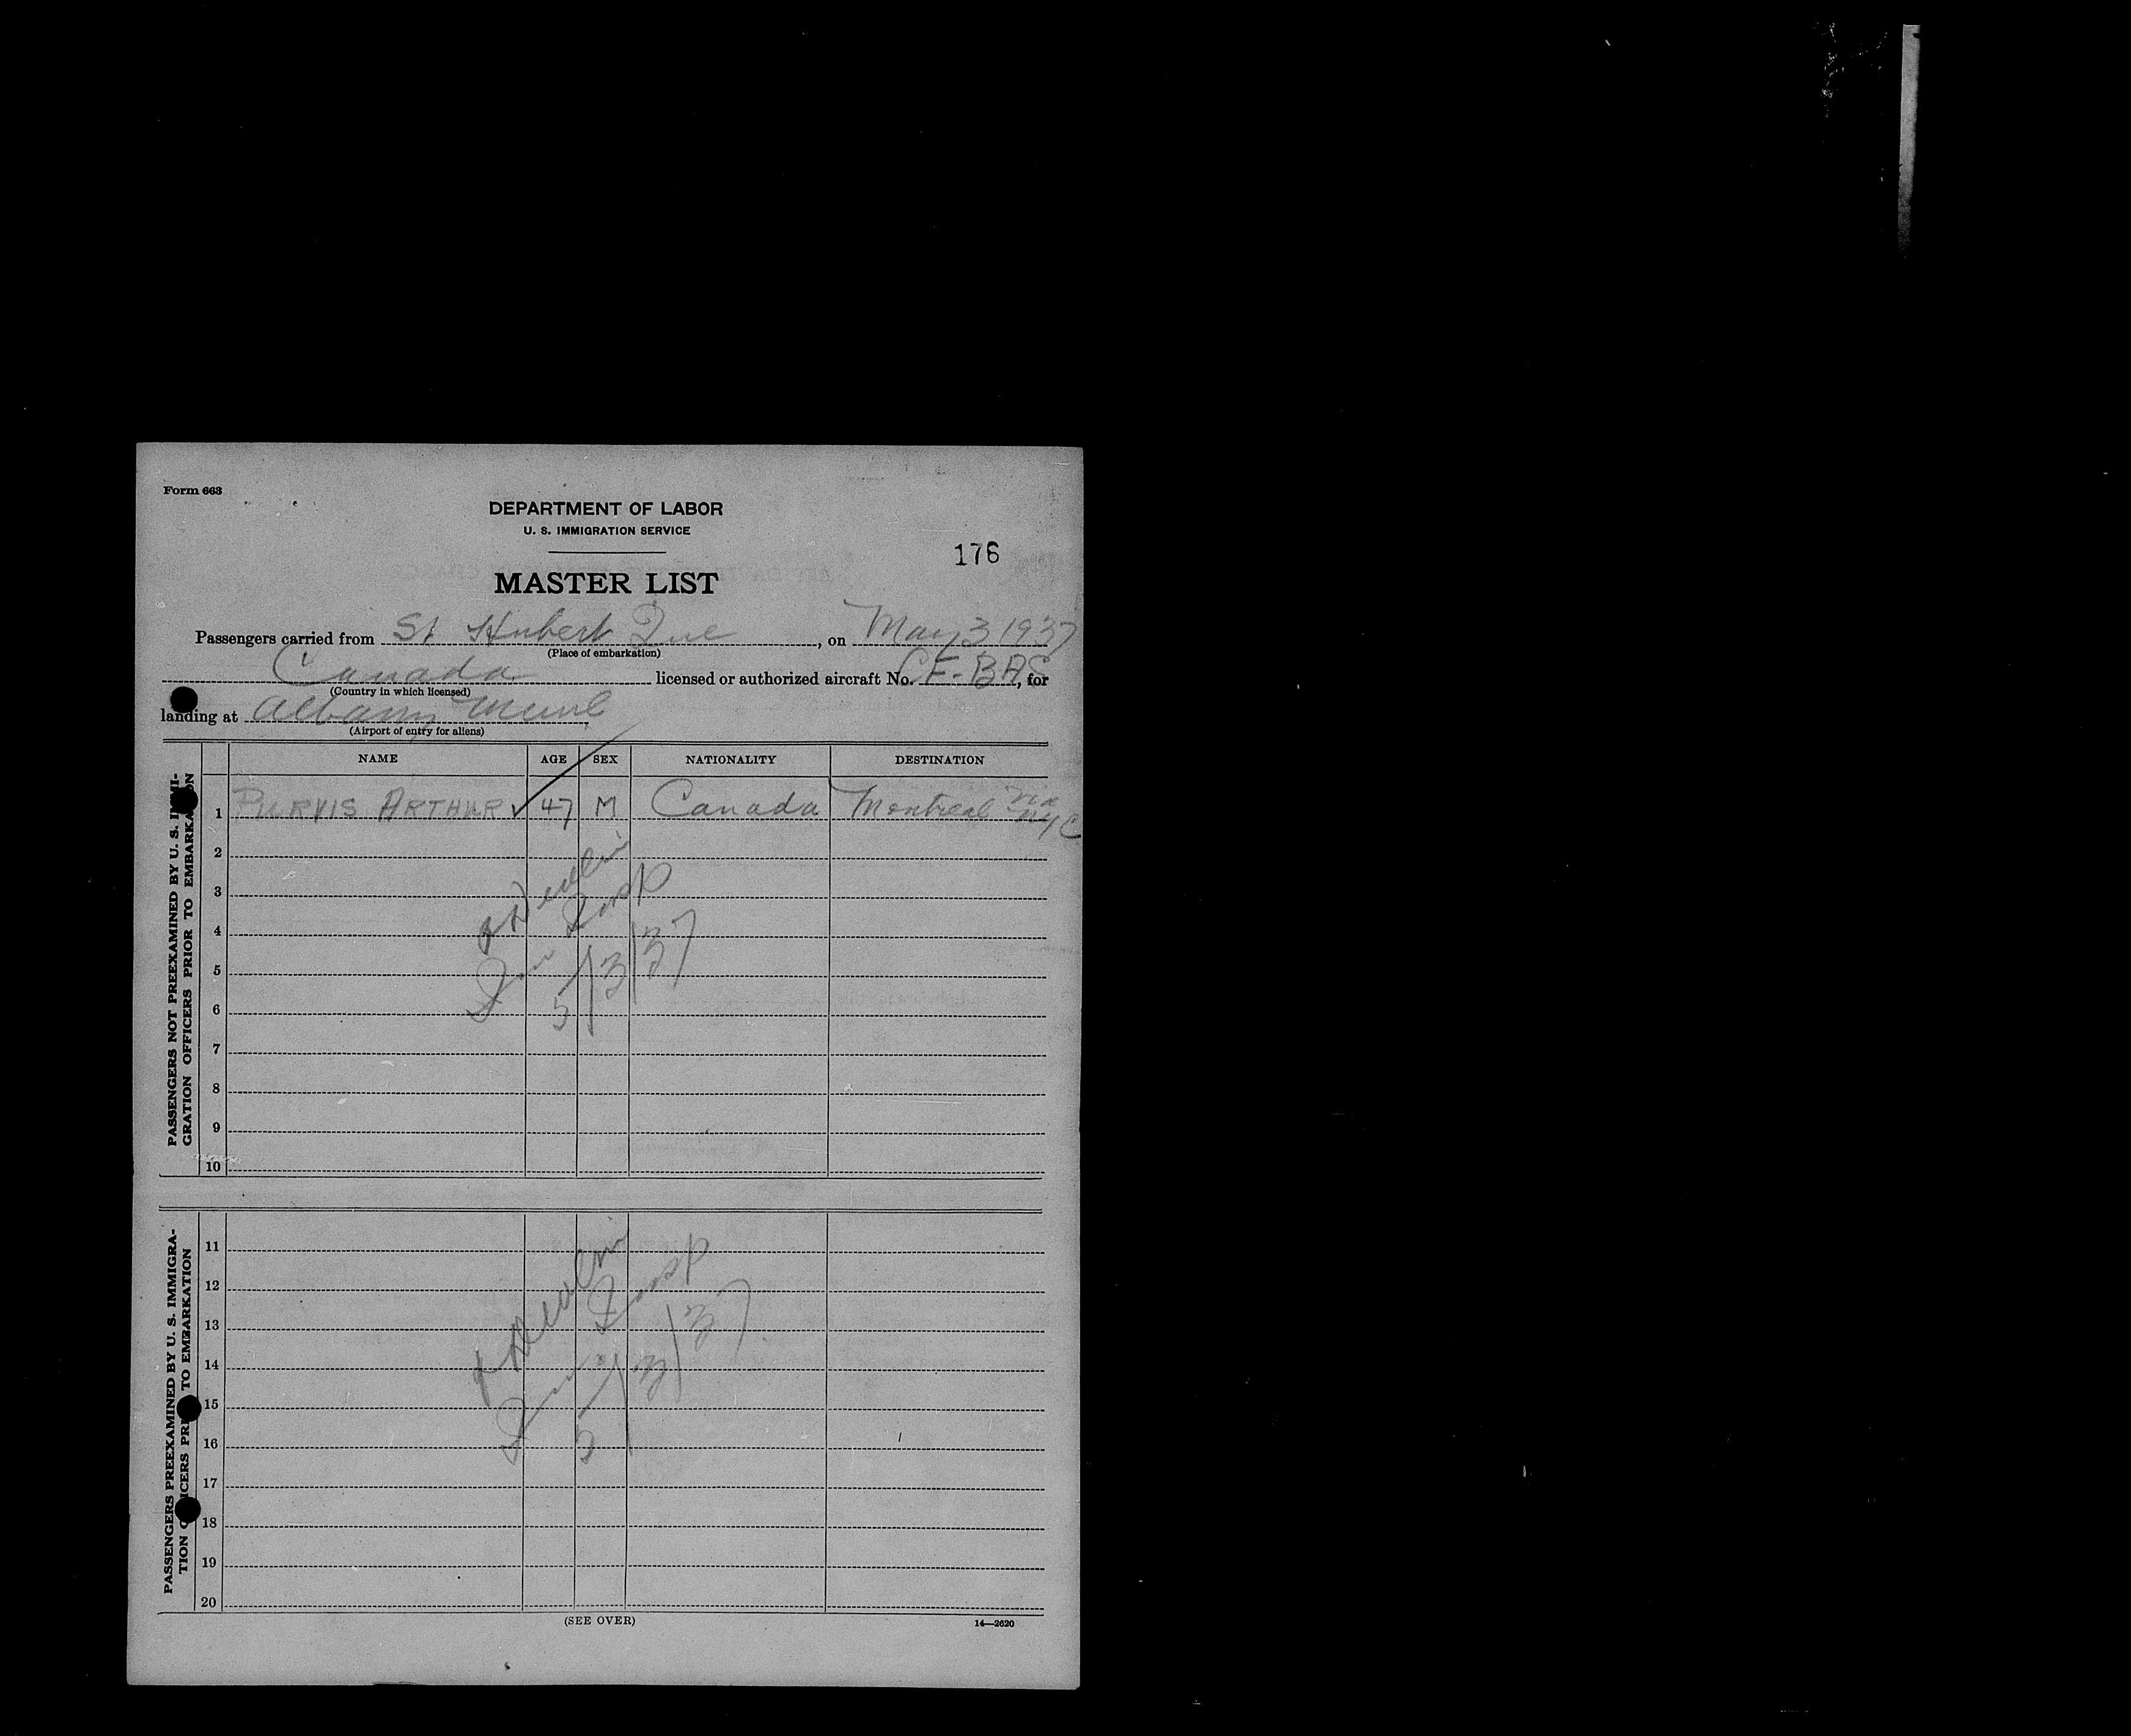 Form 663
DEPARTMENT OF LABOR
U. S. IMMIGRATION SERVICE
176
MASTER LIST
Passengers carried from St Hubert Que, on May 3 1937
(Place of embarkation)
Canada licensed or authorized aircraft No. CF-BAS, for
(Country in which licensed)
landing at Albany Muni
(Airport of entry for aliens)
NAME AGE SEX NATIONALITY DESTINATION
PASSENGERS NOT PREEXAMINED BY U. S. IMMI-
GRATION OFFICERS PRIOR TO EMBARKATION
1 PURVIS ARTHUR ✓ 47 M Canada Montreal via NYC
2
3
4
5
6
7
8
9
10
Insp
5/3/37
PASSENGERS PREEXAMINED BY U. S. IMMIGRA-
TION OFFICERS PRIOR TO EMBARKATION
11
12
13
14
15
16
17
18
19
20
Insp
5/3/37
(SEE OVER)
14—2620